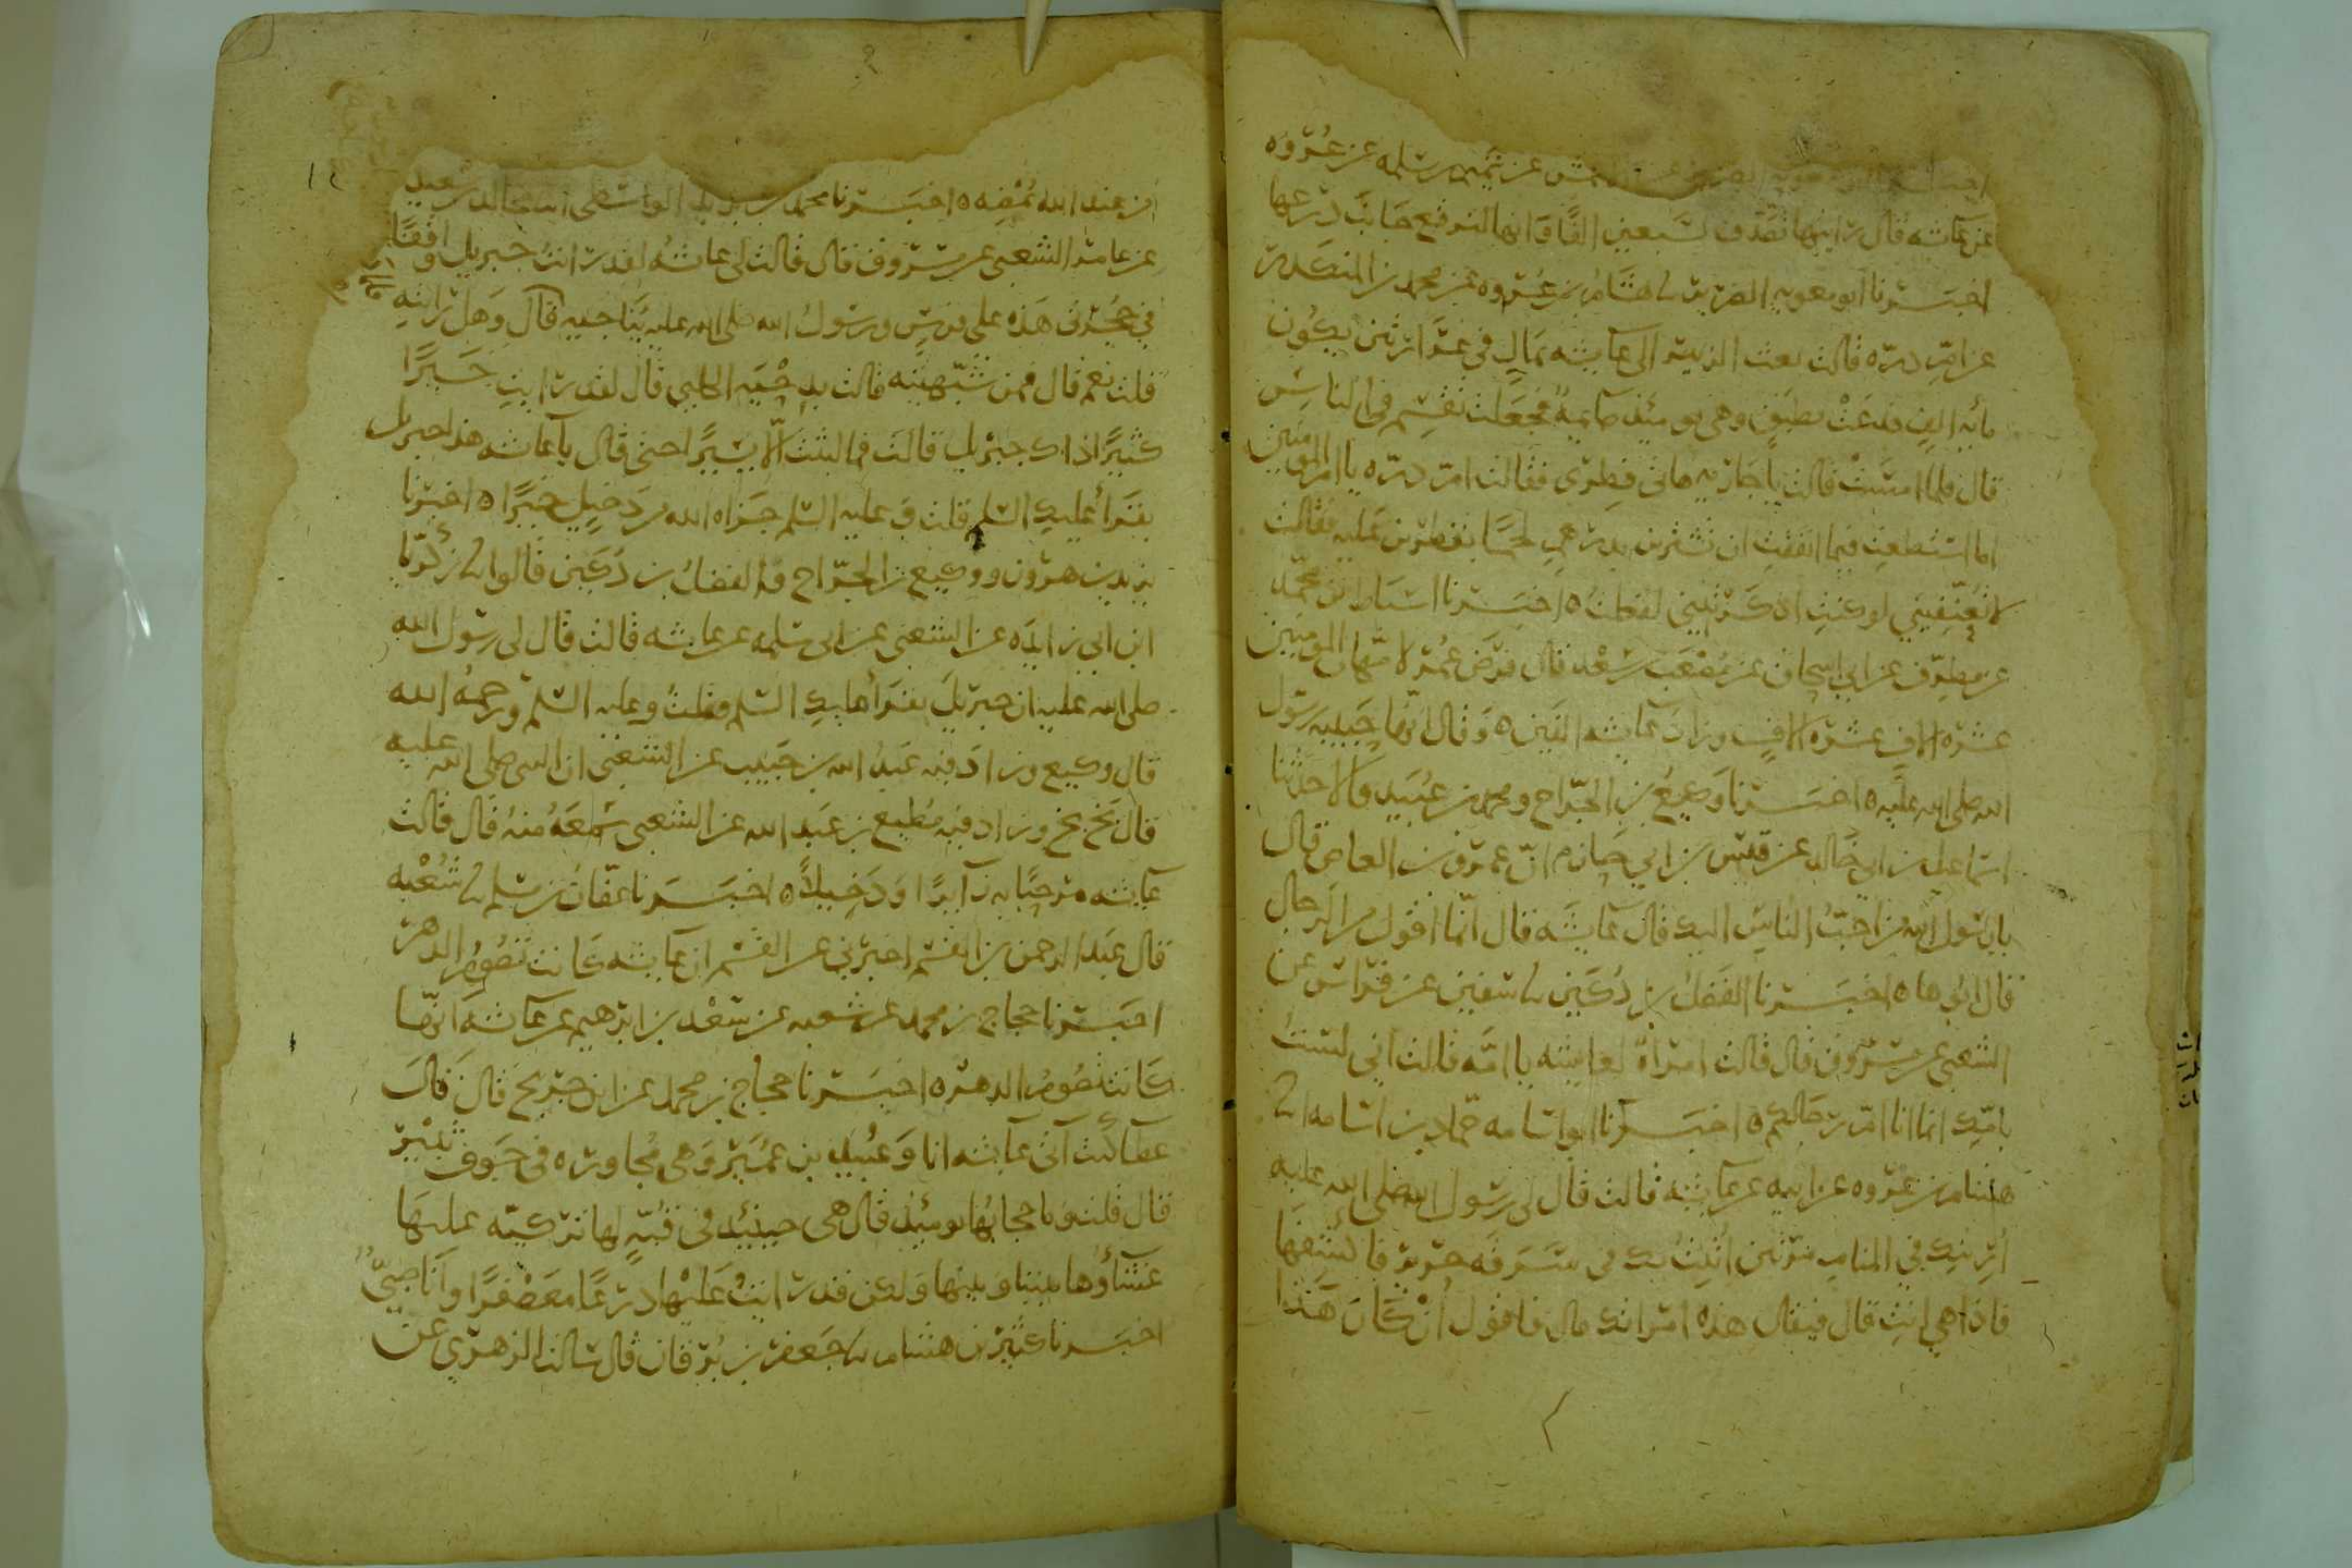 اخبرنا ابو معويه الضرير عن الاعمش عن تميم بن سلمه عن عروه
عن عائشه قال رايتها تصدق بسبعين الفا وانها لترقع جانب درعها
اخبرنا ابو معويه الضرير نا هشام بن عروه عن محمد بن المنكدر
عن ام دره قالت بعث الزبير الى عائشه بمال في غرارتين يكون
مايه الف فدعت بطبق وهي يومئذ صايمه فجعلت تقسم في الناس
قال فلما امست قالت يا جاريه هاتي فطري فقالت ام دره يا ام المومنين
اما استطعت فيما انفقت ان تشترين بدرهم لحما تفطرين عليه فقالت
لا تعنفيني لو كنت اذكرتيني لفعلت ه اخبرنا اسباط بن محمد
عن مطرف عن ابي اسحاق عن مصعب بن سعد قال فرض عمر لامهات المومنين
عشره الاف عشره الاف وزاد عائشه الفين ه وقال انها حبيبه رسول
الله صلى الله عليه ه اخبرنا وكيع بن الجراح ومحمد بن عبيد قالا حدثنا
اسماعيل بن ابي خالد عن قيس بن ابي حازم ان عمرو بن العاص قال
يا رسول الله من احب الناس اليك قال عائشه قال انما اقول من الرجال
قال ابوها ه اخبرنا الفضل بن دكين نا سفين عن فراس عن
الشعبي عن مسروق قال قالت امراة لعائشه يا امه فقالت اني لست
بامك انما انا ام رجالكم ه اخبرنا ابو اسامه حماد بن اسامه نا
هشام بن عروه عن ابيه عن عائشه قالت قال لي رسول الله صلى الله عليه
اريتك في المنام مرتين اتيت بك في سرقه حرير فاكشفها
فاذا هي انت قال فيقال هذه امراتك قال فاقول ان كان هذا
١٤
من عند الله يمضه ه اخبرنا محمد بن يزيد الواسطي انا مجالد بن سعيد
عن عامر الشعبي عن مسروق قال قالت لي عائشه لقد رايت جبريل واقفا
في حجرتي هذه على فرس ورسول الله صلى الله عليه يناجيه قال وهل رايته
قلت نعم قال فمن شبهته قالت بدحيه الكلبي قال لقد رايت خيرا
كثيرا ذاك جبريل قالت فما لبثت الا يسيرا حتى قال يا عائشه هذا جبريل
يقرأ عليك السلم قلت وعليه السلم جزاه الله من دخيل خيرا ه اخبرنا
يزيد بن هرون ووكيع بن الجراح والفضل بن دكين قالوا نا زكريا
ابن ابي زايده عن الشعبي عن ابي سلمه عن عائشه قالت قال لي رسول الله
صلى الله عليه ان جبريل يقرأ عليك السلم فقلت وعليه السلم ورحمه الله
قال وكيع وزاد فيه عبد الله بن حبيب عن الشعبي ان النبي صلى الله عليه
قال بخ بخ وزاد فيه مطيع بن عبد الله عن الشعبي سمعه منه قال قالت
عائشه مرحبا به زايرا ودخيلا ه اخبرنا عفان بن مسلم نا شعبه
قال عبد الرحمن بن القسم اخبرني عن القسم ان عائشه كانت تصوم الدهر
اخبرنا حجاج بن محمد عن شعبه عن سعد بن ابرهيم عن عائشه انها
كانت تصوم الدهر ه اخبرنا حجاج بن محمد عن ابن جريج قال قال
عطا كنت آتي عائشه انا وعبيد بن عمير وهي مجاوره في جوف ثبير
قال قلت وما حجابها يومئذ قال هي حينئذ في قبه لها تركيه عليها
غشاوها بيننا وبينها ولكن قد رايت عليها درعا معصفرا وانا صبي
اخبرنا كثير بن هشام نا جعفر بن برقان قال سالت الزهري عن